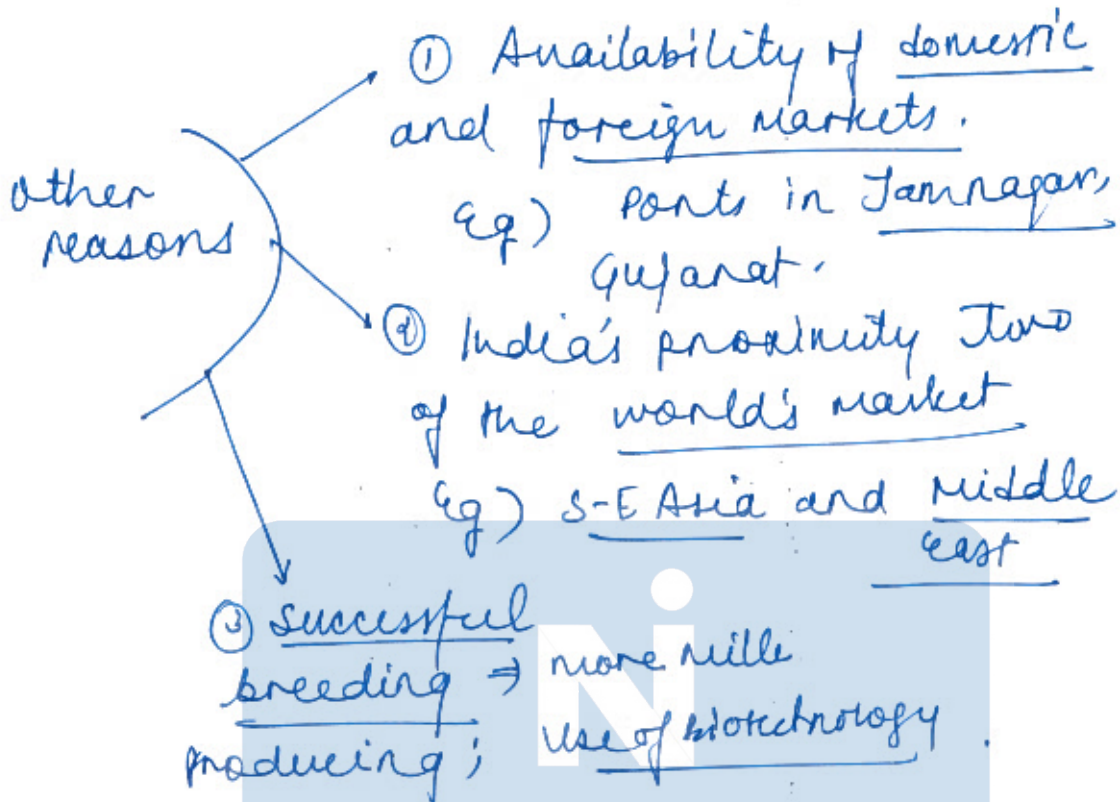 other
reasons
① Availability of domestic
and foreign markets.
Eg) Ports in Jamnagar,
Gujarat.
② India's proximity two
of the world's market
Eg) S-E Asia and Middle
East
③ successful
breeding ⇒ more milk
producing; use of biotechnology.
Ni